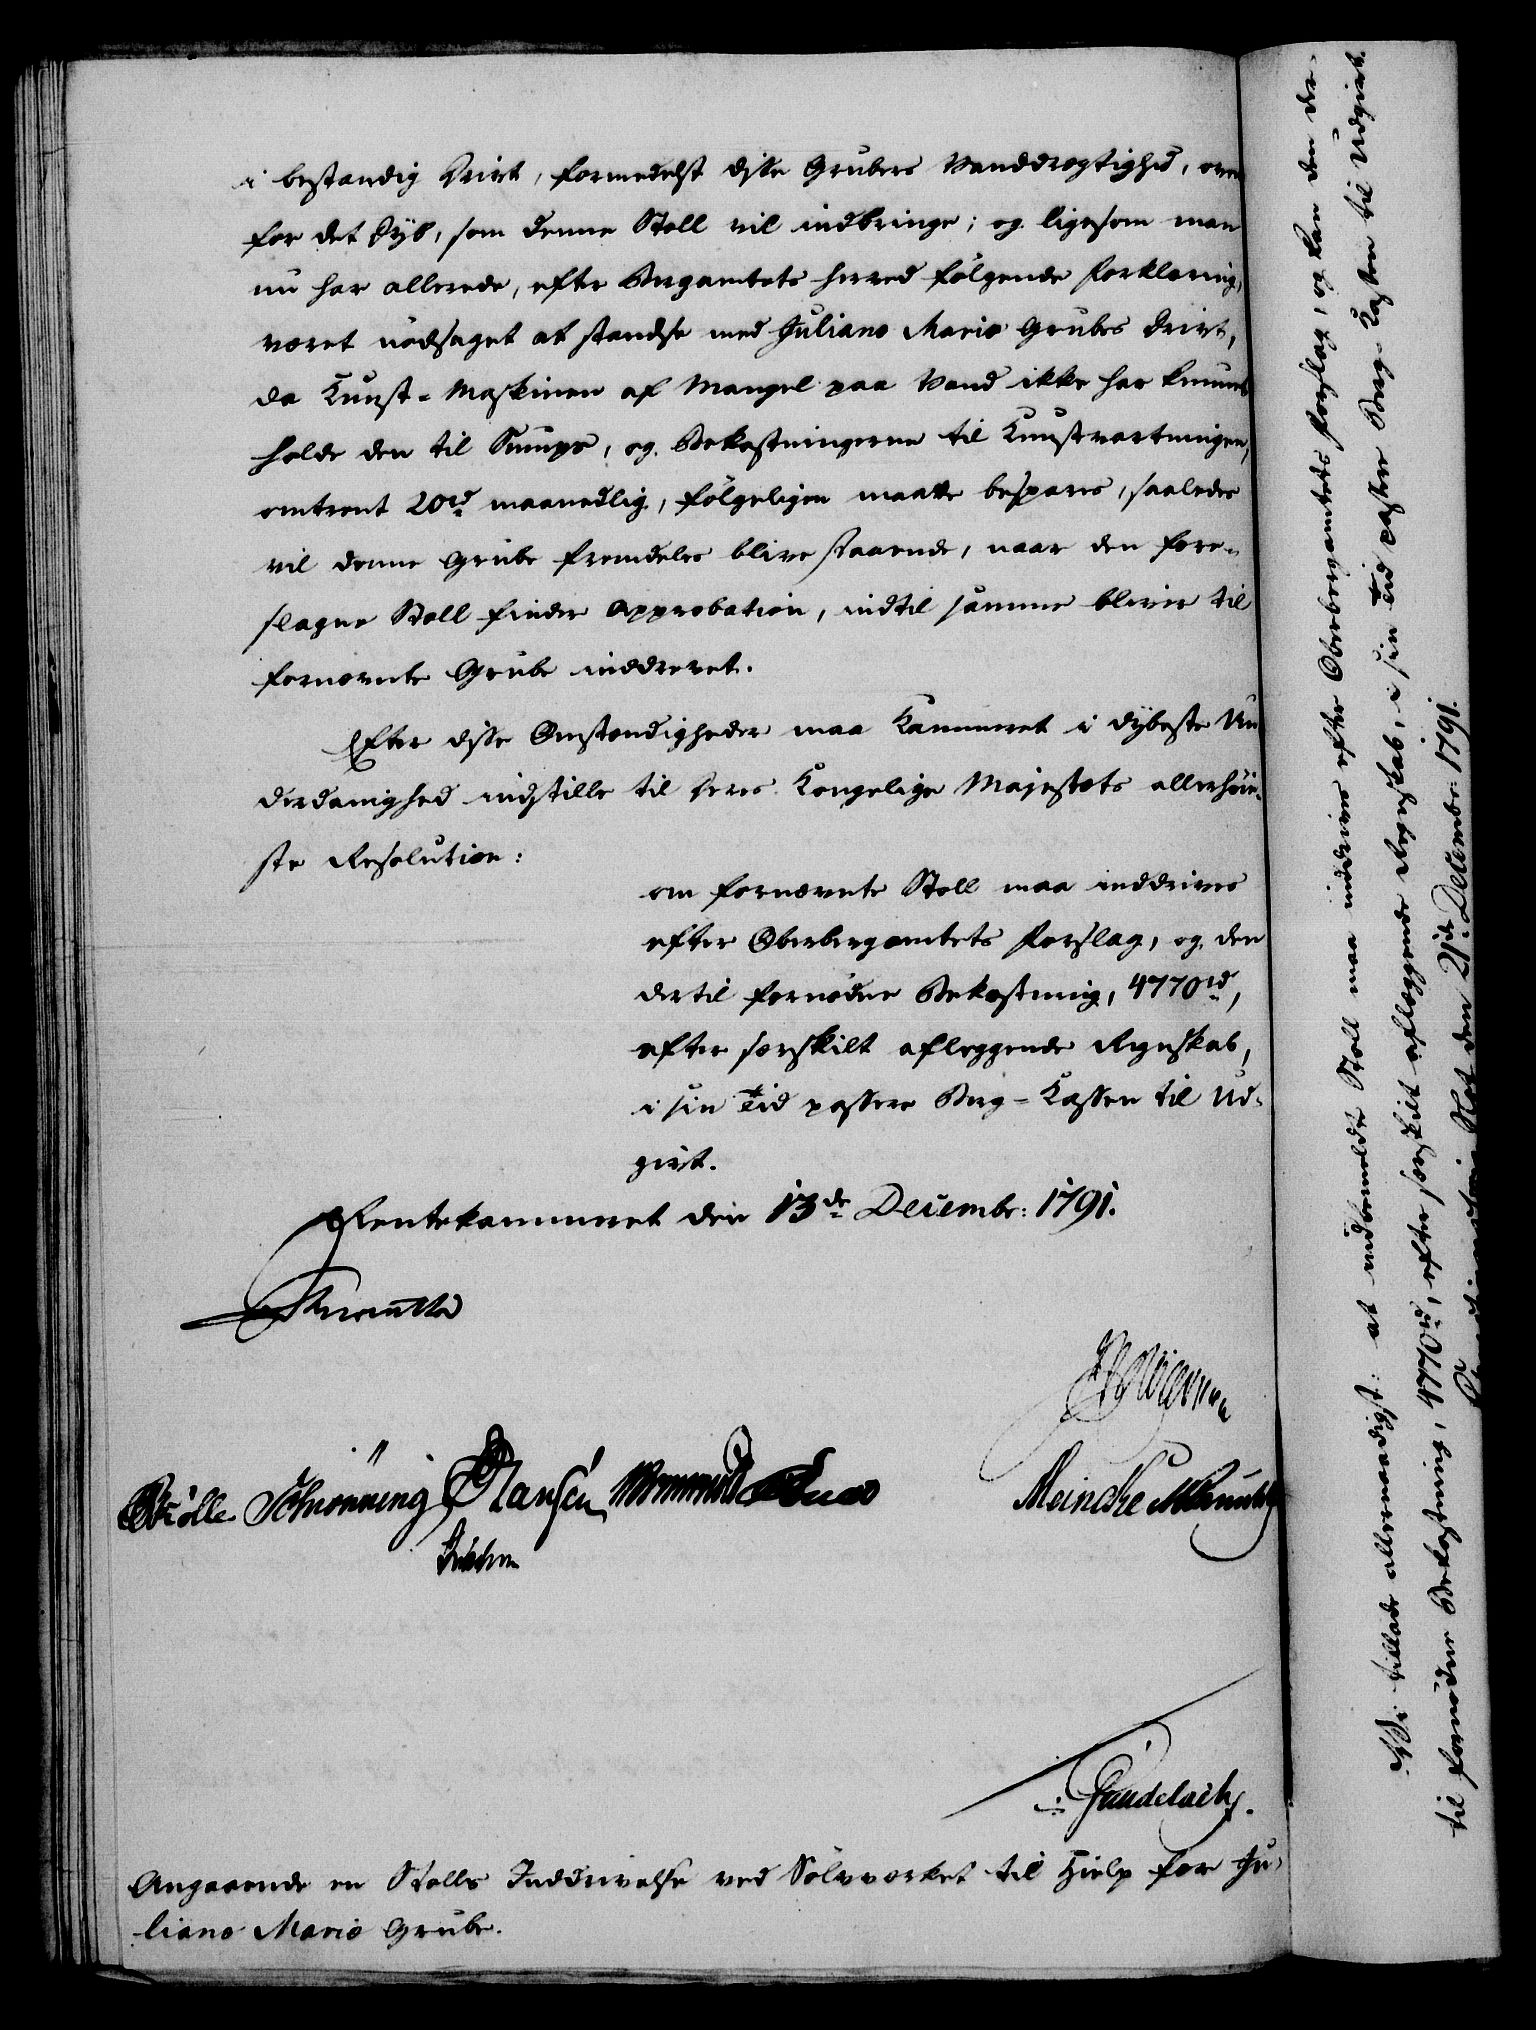 i bestandig Drivt, formedelst disse Grubers Vanddrægtighed, oven
for det Dyb, som denne Stoll vil indbringe; og ligesom man
nu har allerede, efter Bergamtets herved følgende Forklaring,
været nødsaget at standse med Juliane Marie Grubes Drivt,
da Kunst-Maskinen af Mangel paa Vand ikke har kunnet
holde den til Sumps, og Bekostningerne til Kunstvartningen,
omtrent 20rd maanedlig, følgeligen maatte bespares, saaledes
vil denne Grube fremdeles blive staaende, naar den fore-
slagne Stoll finder Approbation, indtil samme bliver til
fornævnte Grube inddrevet.
Efter disse Omstændigheder maa Kammeret i dybeste Un-
derdanighed indstille til Deres Kongelige Majestæts allerhøie-
ste Resolution:
om fornævnte Stoll maa inddrives
efter Oberbergamtets Forslag, og den
dertil fornødne Bekostning, 4770rd,
efter særskilt aflæggende Regnskab,
i sin Tid passere Berg-Kassen til Ud-
givt.
Rentekammeret den 13de Decembr: 1791.
Meincke
Brølle Schrønning Hansen
Gundelach.
Angaaende en Stolls Inddrivelse ved Sølvværket til Hielp for Ju-
liane Marie Grube.
Vi tillade allernaadigst: at indbemeldte Stoll maa inddrives efter Oberbergamtets Forslag, og kan den der-
til fornødne Bekostning, 4770rd, efter særskilt aflæggende Regnskab, i sin Tid passere Berg-Kassen til Udgivt.
Slot den 21de Decembr: 1791.